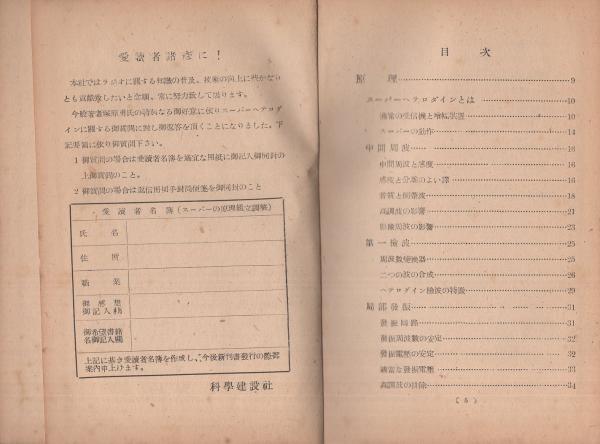 愛讀者諸彦に!
本社ではラジオに關する知識の普及、技術の向上に些かなり
とも貢獻致したいと念願、常に努力致して居ります。
今般著者塚原勇氏の特別なる御好意に依りスーパーヘテロダ
インに關する御質問に對し御返答を頂くことになりました。下
記要領に依り御質問下さい。
1 御質問の場合は愛讀者名簿を適宜な用紙に御記入御同封の
上御質問のこと。
2 御質問の場合は返信用切手封筒便箋を御同封のこと
愛讀者名簿(スーパーの原理組立調整)
氏名
住所
職業
御感想
御記入欄
御希望書籍
名御記入欄
上記に基き愛讀者名簿を作成し、今後新刊書發行の際御
案内申上げます。
科學建設社
目次
原理 9
スーパーヘテロダインとは 10
普通の受信機と增幅裝置 10
スーパーの動作 14
中間周波 16
中間周波と感度 16
感度と分離のよい譯 16
音質と側帶波 18
高調波の影響 21
影像周波の影響 23
第一檢波 25
周波數變換器 25
二つの波の合成 26
ヘテロダイン檢波の特徵 29
局部發振 31
發振回路 31
發振周波數の安定 32
發振電壓の安定 32
適當な發振電壓 33
高調波の排除 34
(5)